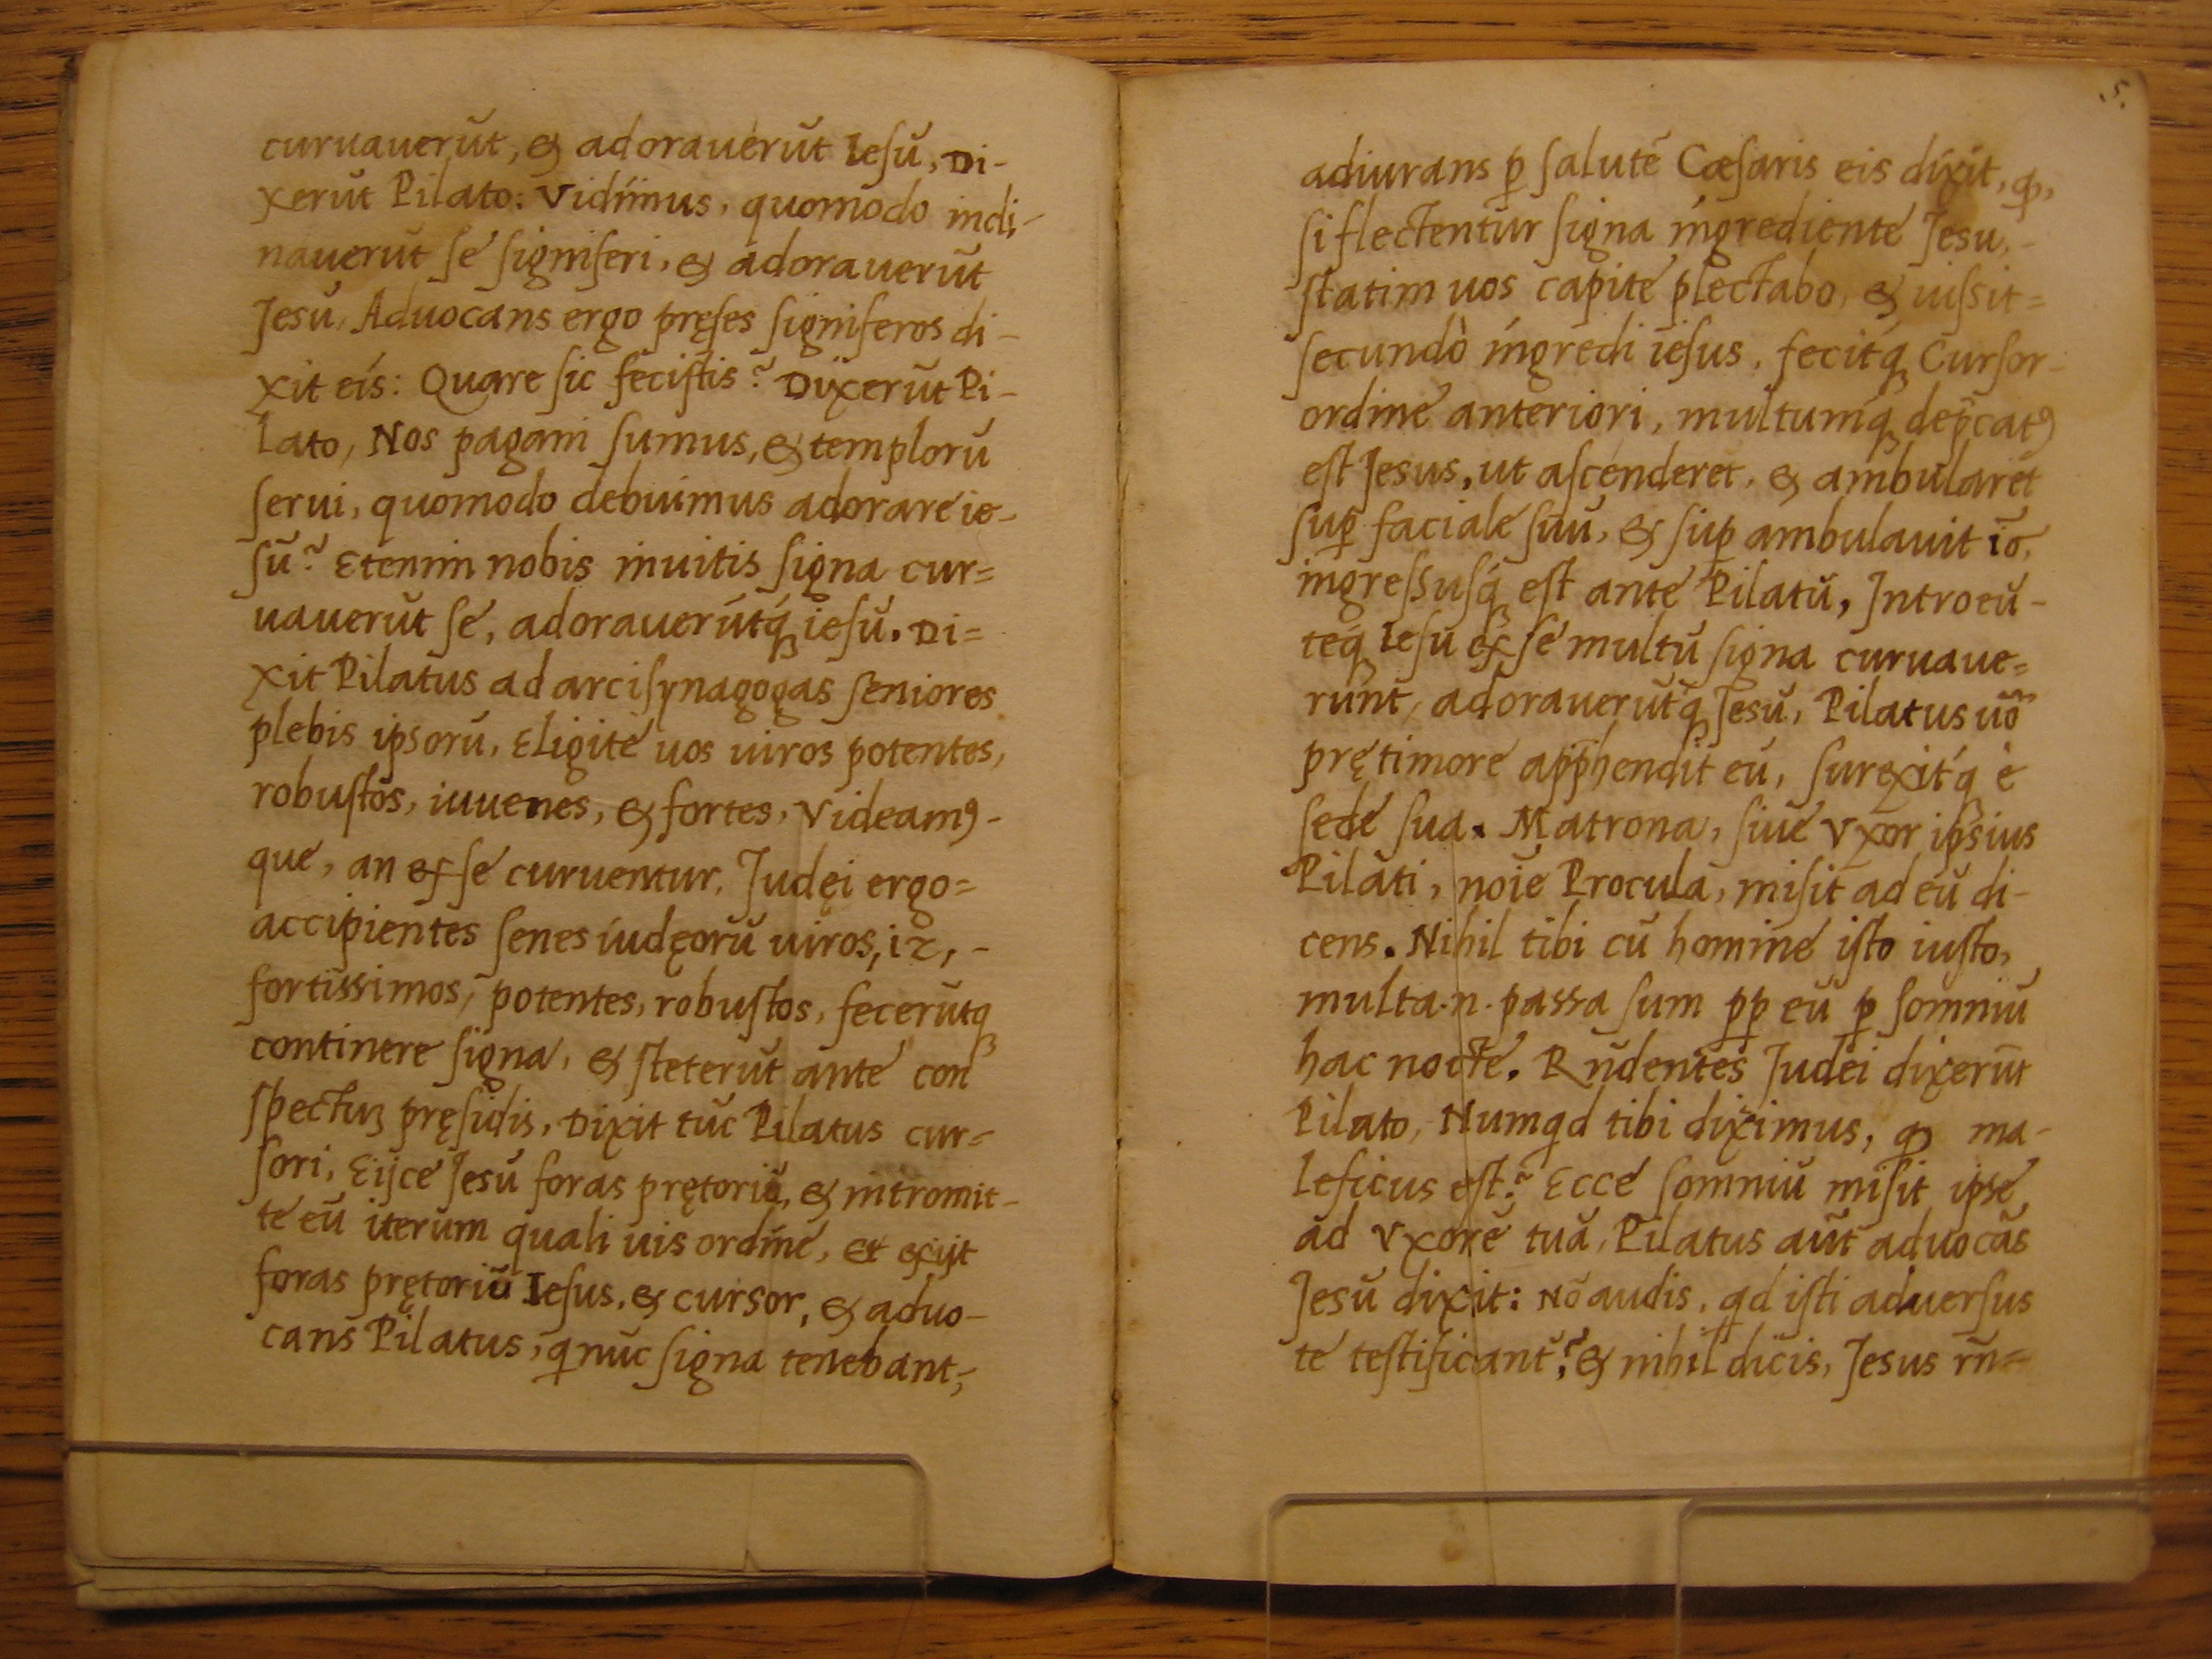 curuauerūt, & adorauerūt Iesū, Di-
xerūt Pilato: Vidimus, quomodo incli-
nauerūt se signiferi, & adorauerūt
Jesū, Aduocans ergo pręses signiferos di-
xit eis: Quare sic fecistis? Dixerūt Pi-
lato, Nos pagani sumus, & templorū
serui, quomodo debuimus adorare ie-
sū? Etenim nobis inuitis signa cur=
uauerūt se, adorauerūtq́ꝫ iesū. Di=
xit Pilatus ad arcisynagogas seniores
plebis ipsorū, Eligite uos uiros potentes,
robustos, iuuenes, & fortes, Videamꝯ-
que, an ex se curuentur. Judęi ergo=
accipientes senes iudęorū uiros, iz, -
fortissimos, potentes, robustos, fecerūtqꝫ
continere signa, & steterūt ante con
spectuꝫ pręsidis, Dixit tūc Pilatus cur=
sori, Eijce Jesū foras pretoriū, & intromit-
te eū iterum quali uis ordine, Et exijt
foras pretoriū Iesus, & cursor, & aduo-
cans Pilatus, q̄ nūc signa tenebant,
5.
adiurans ꝑ salutē Cæsaris eis dixit, ꝙ,
si flectentur signa ingrediente Jesu, -
statim uos capite plectabo, & iussit=
secundò ingredi iesus, fecitq́ꝫ Cursor-
ordine anteriori, multumq́ꝫ dep̄catꝯ
est Jesus, ut ascenderet, & ambularet
suꝑ faciale suū, & suꝑ ambulauit iō,
ingressusq́ꝫ est ante Pilatū, Introeū-
teq́ꝫ Iesu ex se multū signa curuaue=
runt, adorauerūtq́ꝫ Jesū, Pilatus uō
prę timore app̄hendit eū, surexitq́ è
sede sua. Matrona, siue Vxor ipsius
Pilati, noīe Procula, misit ad eū di-
cens. Nihil tibi cū homine isto iusto,
multa .n. passa sum ꝑꝑ eū ꝑ somniū
hac nocte. Rn̄dentes Judei dixerūt
Pilato, Numqd tibi diximus, ꝙ ma-
leficus est? Ecce somniū misit ipse
ad Vxorē tuā, Pilatus aūt aduocās
Jesū dixit: Nō audis, qd isti aduersus
te testificant̄? & nihil dicis, Jesus rn̄=